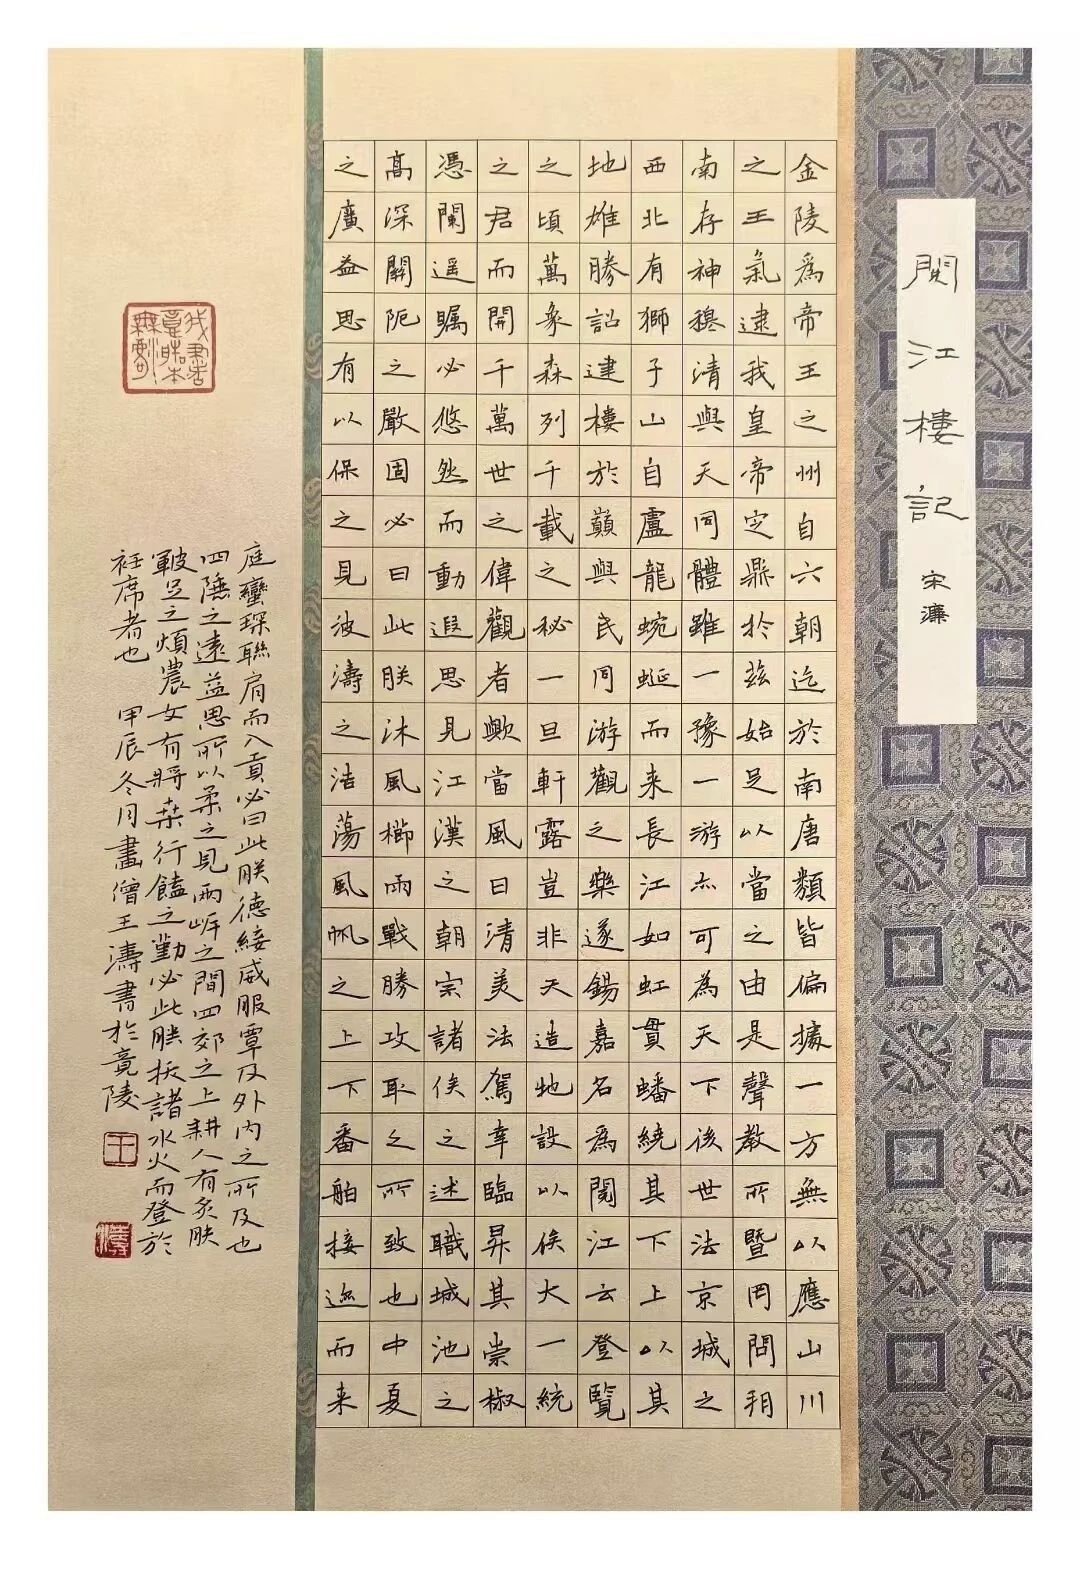 閱江樓記
宋濂
金陵爲帝王之州自六朝迄於南唐類皆偏據一方無以應山川
之王氣逮我皇帝定鼎於茲始足以當之由是聲教所暨罔間朔
南存神穆清與天同體雖一豫一游亦可為天下後世法京城之
西北有獅子山自盧龍蜿蜒而来長江如虹貫蟠繞其下上以其
地雄勝詔建樓於巔與民同游觀之樂遂錫嘉名爲閱江云登覽
之頃萬象森列千載之秘一旦軒露豈非天造地設以俟大一統
之君而開千萬世之偉觀者歟當風日清美法駕幸臨昇其崇椒
憑闌遥矚必悠然而動遐思見江漢之朝宗諸侯之述職城池之
高深關阨之嚴固必曰此朕沐風櫛雨戰勝攻取之所致也中夏
之廣益思有以保之見波濤之浩蕩風帆之上下番舶接迹而来
庭蠻琛聯肩而入貢必曰此朕德綏威服覃及外内之所及也
四陲之遠益思所以柔之見兩岸之間四郊之上耕人有炙肤
皸足之煩農女有捋桑行饁之勤必此朕拔諸水火而登於
衽席者也 甲辰冬月畫僧王濤書於竟陵
王
濤